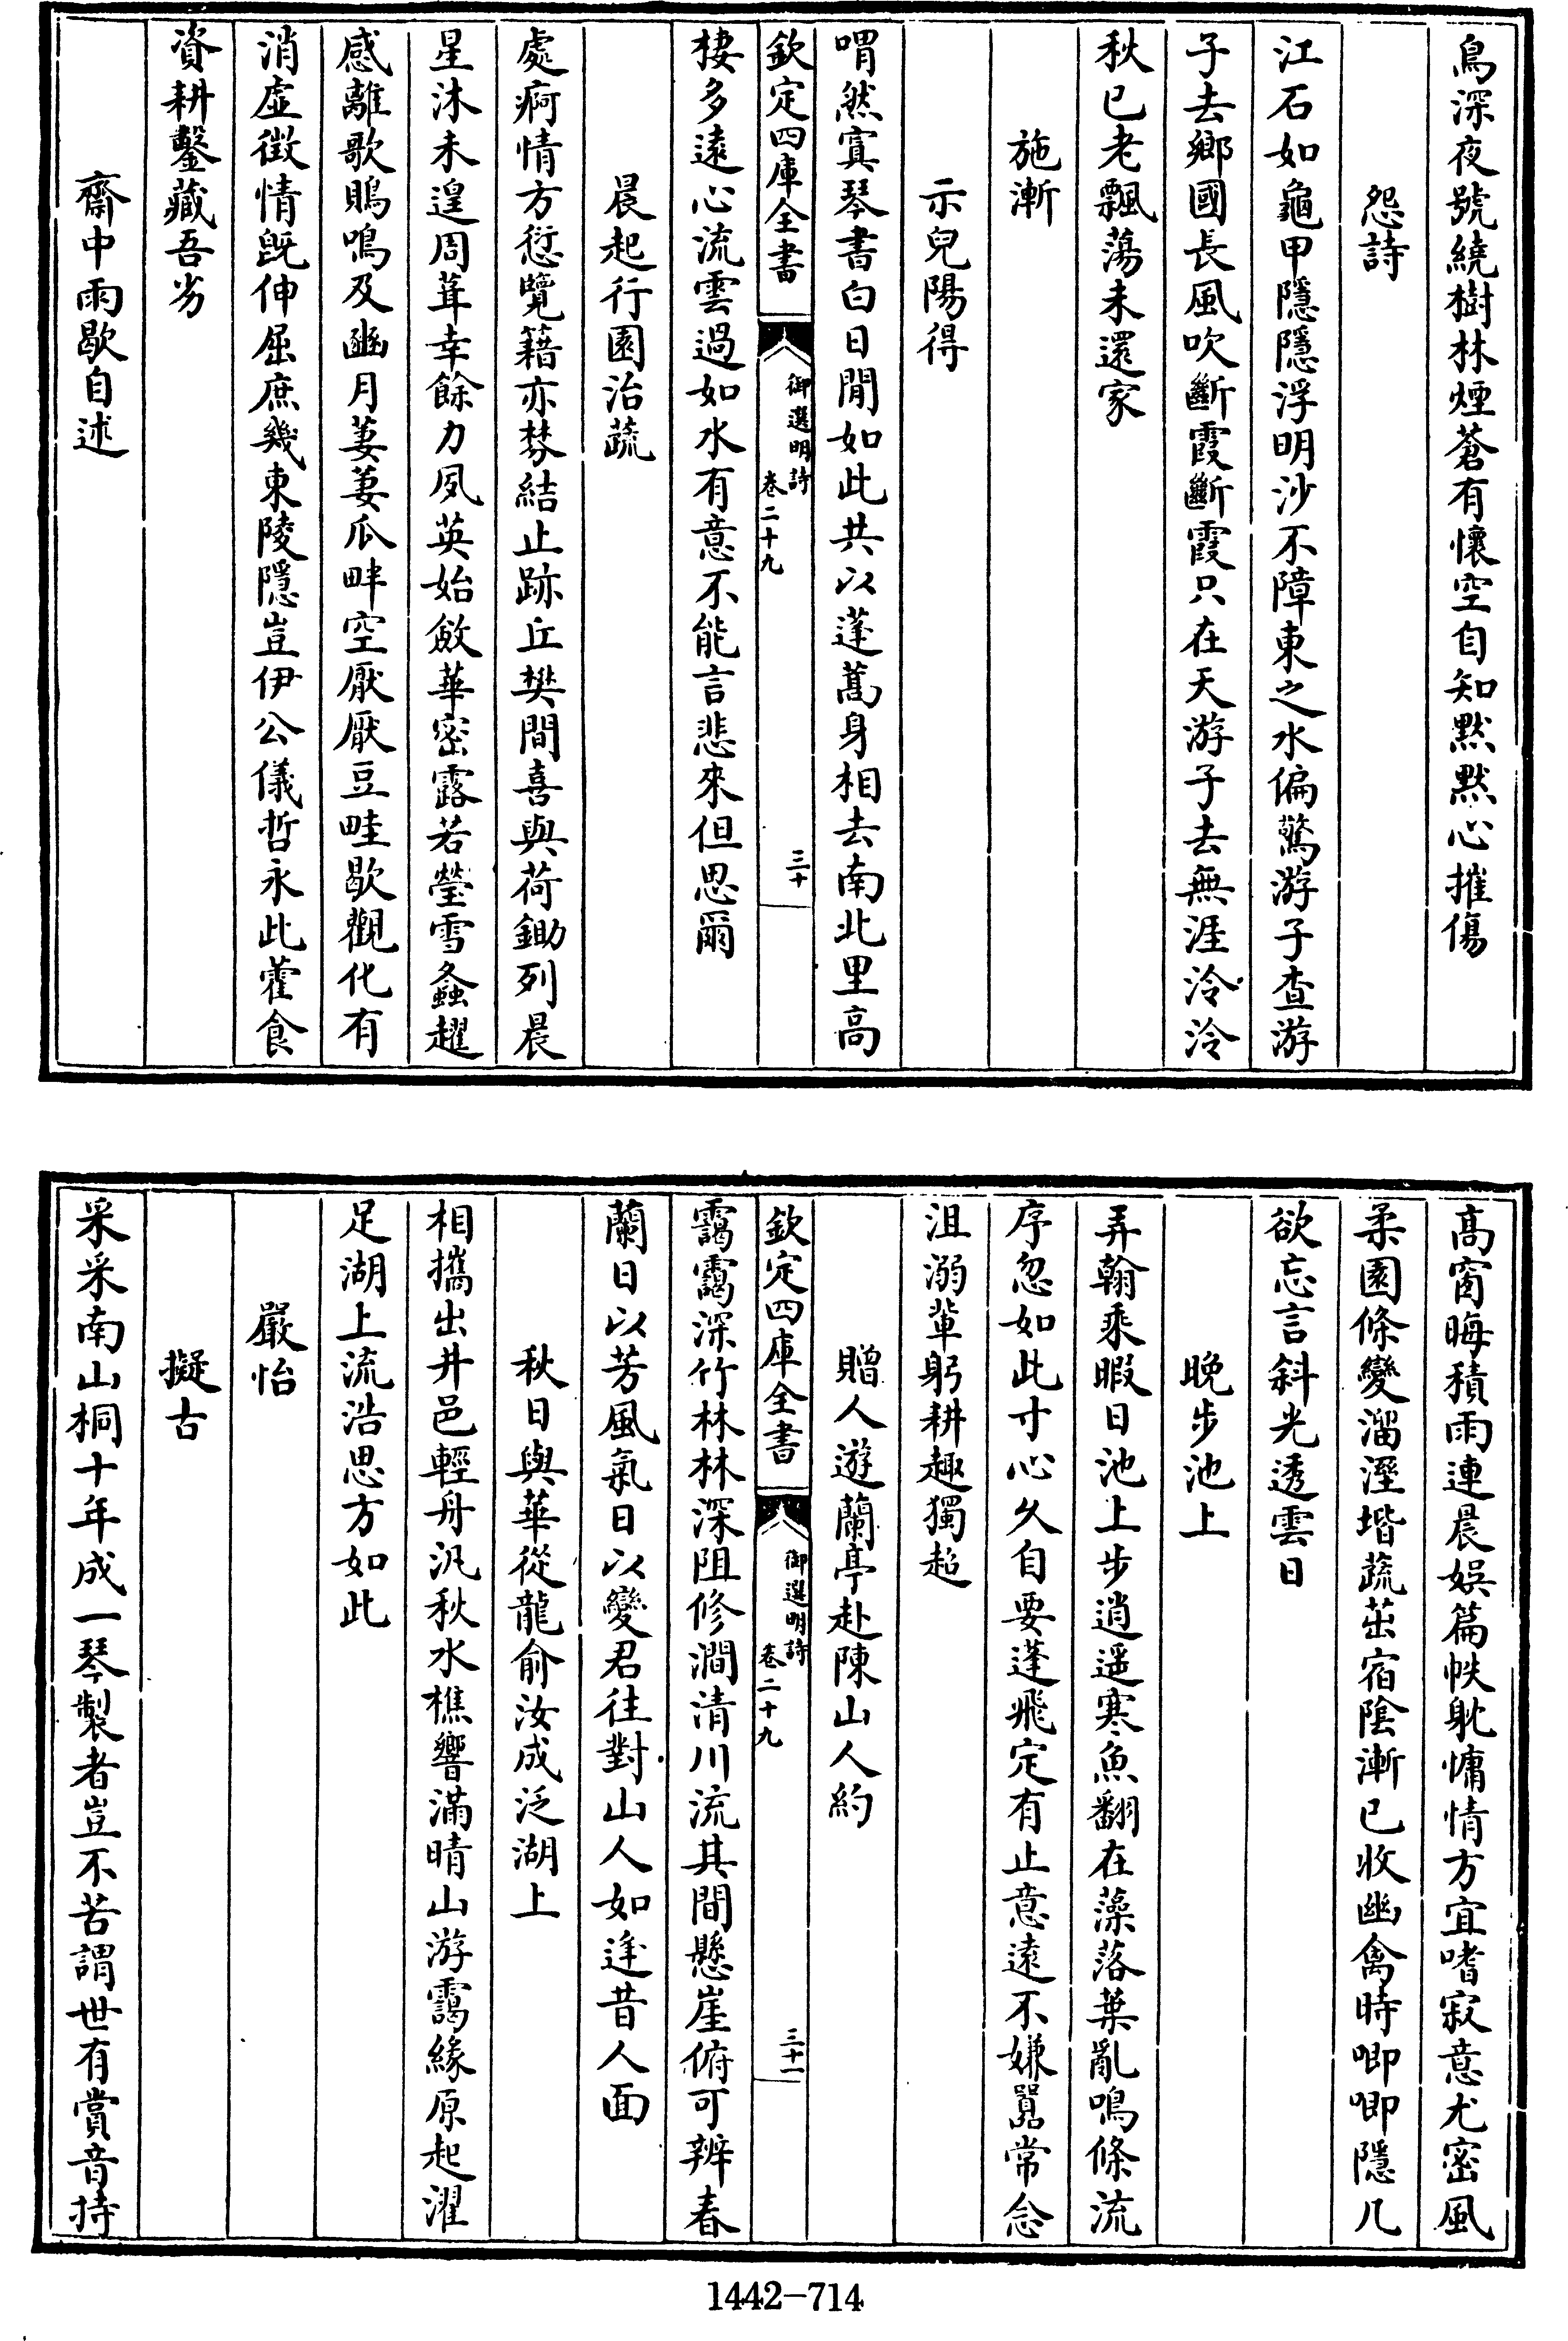 鳥深夜號繞樹林煙蒼有懷空自知默默心摧傷
怨詩
江石如龜甲隱隱浮明沙不障東之水偏驚游子查游
子去鄉國長風吹斷霞斷霞只在天游子去無涯泠泠
秋已老飄蕩未還家
施漸
示兒陽得
喟然寘琴書白日閒如此共以蓬蒿身相去南北里高
欽定四庫全書
御選明詩
卷二十九
三十
棲多遠心流雲過如水有意不能言悲來但思爾
晨起行園治蔬
處痾情方愆覽籍亦棼結止跡丘樊間喜與荷鋤列晨
星沐未遑周葺幸餘力夙英始斂華密露若瑩雪螽趯
感離歌鵙鳴及豳月萋萋瓜畔空厭厭豆畦歇觀化有
消虛徵情既伸屈庶幾東陵隱豈伊公儀哲永此藿食
資耕鑿藏吾劣
齋中雨歇自述
高窗晦積雨連晨娛篇帙躭慵情方宜嗜寂意尤密風
柔園條變溜溼堦蔬茁宿陰漸已收幽禽時唧唧隱几
欲忘言斜光透雲日
晚步池上
弄翰乘暇日池上步逍遥寒魚翻在藻落葉亂鳴條流
序忽如此寸心久自要蓬飛定有止意遠不嫌囂常念
沮溺輩躬耕趣獨超
贈人遊蘭亭赴陳山人約
欽定四庫全書
御選明詩
卷二十九
三十一
靄靄深竹林林深阻修澗清川流其間懸崖俯可辨春
蘭日以芳風氣日以變君往對山人如逢昔人面
秋日與華從龍俞汝成泛湖上
相攜出井邑輕舟汎秋水樵響滿晴山游靄緣原起濯
足湖上流浩思方如此
嚴怡
擬古
采采南山桐十年成一琴製者豈不苦謂世有賞音持
1442-714